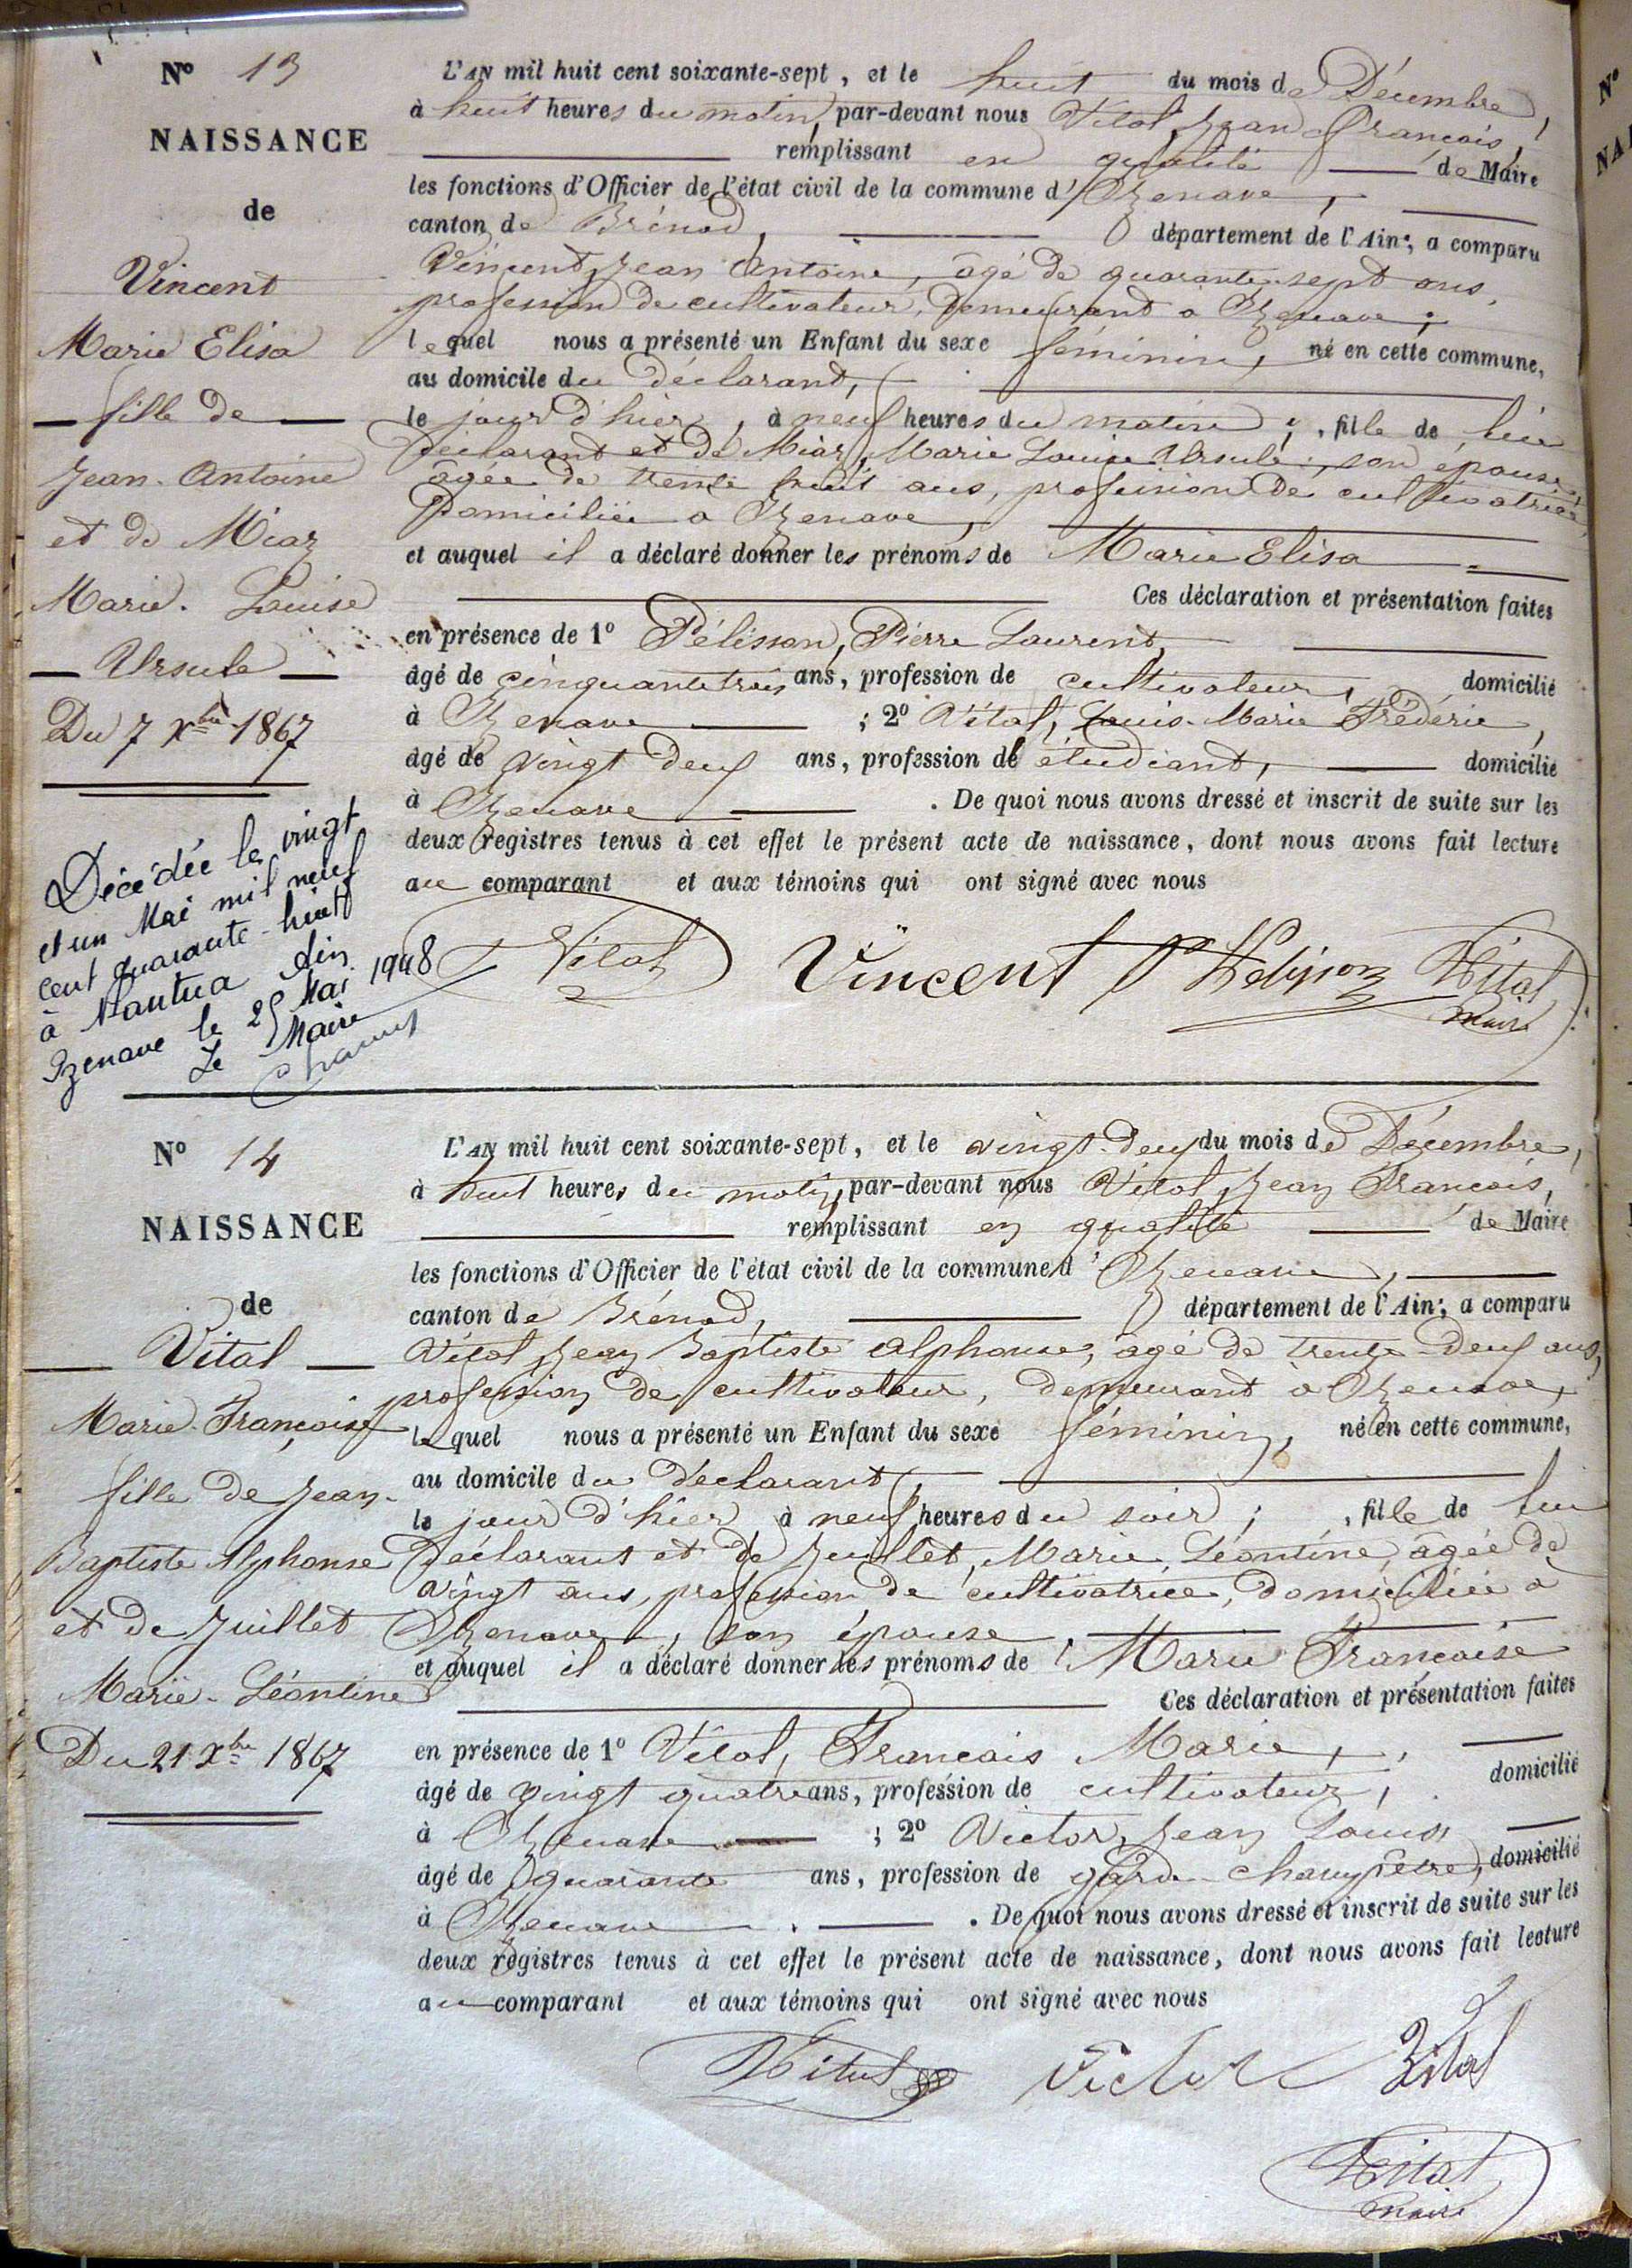 N° 13
NAISSANCE
de
Vincent
Marie Elisa
fille de
Jean-Antoine
et de Miaz
Marie-Louise
Ursule
Du 7 Xbre 1867
Décédée le vingt
et un Mai mil neuf
cent quarante-huit
à Nantua Ain
Izenave le 25 Mai 1948
Le Maire
L'AN mil huit cent soixante-sept, et le huit du mois de Décembre,
à huit heures du matin, par-devant nous Vital, Jean François,
remplissant en qualité de Maire
les fonctions d'Officier de l'état civil de la commune d'Izenave,
canton de Brénod, département de l'Ain; a comparu
Vincent, Jean Antoine, âgé de quarante-sept ans,
profession de cultivateur, demeurant à Izenave;
lequel nous a présenté un Enfant du sexe féminin, né en cette commune,
au domicile du déclarant,
le jour d'hier, à neuf heures du matin; , fille de lui
déclarant et de Miaz, Marie Louise Ursule, son épouse,
âgée de trente huit ans, profession de cultivatrice,
domiciliée à Izenave,
et auquel il a déclaré donner les prénoms de Marie Elisa
Ces déclaration et présentation faites
en présence de 1° Pélisson, Pierre Laurent,
âgé de cinquante trois ans, profession de cultivateur, domicilié
à Izenave ; 2° Vital, Louis-Marie Frédéric,
âgé de vingt deux ans, profession de étudiant, domicilié
à Izenave . De quoi nous avons dressé et inscrit de suite sur les
deux registres tenus à cet effet le présent acte de naissance, dont nous avons fait lecture
au comparant et aux témoins qui ont signé avec nous
Vital Vincent P Pelisson Vital
Maire
N° 14
NAISSANCE
de
Vital
Marie-Françoise
fille de Jean-
Baptiste Alphonse
et de Juillet
Marie-Léontine
Du 21 Xbre 1867
L'AN mil huit cent soixante-sept, et le vingt-deux du mois de Décembre,
à huit heures du matin, par-devant nous Vital, Jean François,
remplissant en qualité de Maire
les fonctions d'Officier de l'état civil de la commune d'Izenave,
canton de Brénod, département de l'Ain; a comparu
Vital Jean Baptiste Alphonse, âgé de trente-deux ans,
profession de cultivateur, demeurant à Izenave,
lequel nous a présenté un Enfant du sexe féminin, né en cette commune,
au domicile du déclarant,
le jour d'hier, à neuf heures du soir; , fille de lui
déclarant et de Juillet, Marie Léontine, âgée de
vingt ans, profession de cultivatrice, domiciliée à
Izenave, son épouse
et auquel il a déclaré donner les prénoms de Marie Françoise
Ces déclaration et présentation faites
en présence de 1° Vital, François Marie,
âgé de vingt quatre ans, profession de cultivateur, domicilié
à Izenave ; 2° Victor, Jean Louis
âgé de quarante ans, profession de garde-champêtre, domicilié
à Izenave . De quoi nous avons dressé et inscrit de suite sur les
deux registres tenus à cet effet le présent acte de naissance, dont nous avons fait lecture
au comparant et aux témoins qui ont signé avec nous
Vital Victor Vital
Vital
maire
N°
NAI